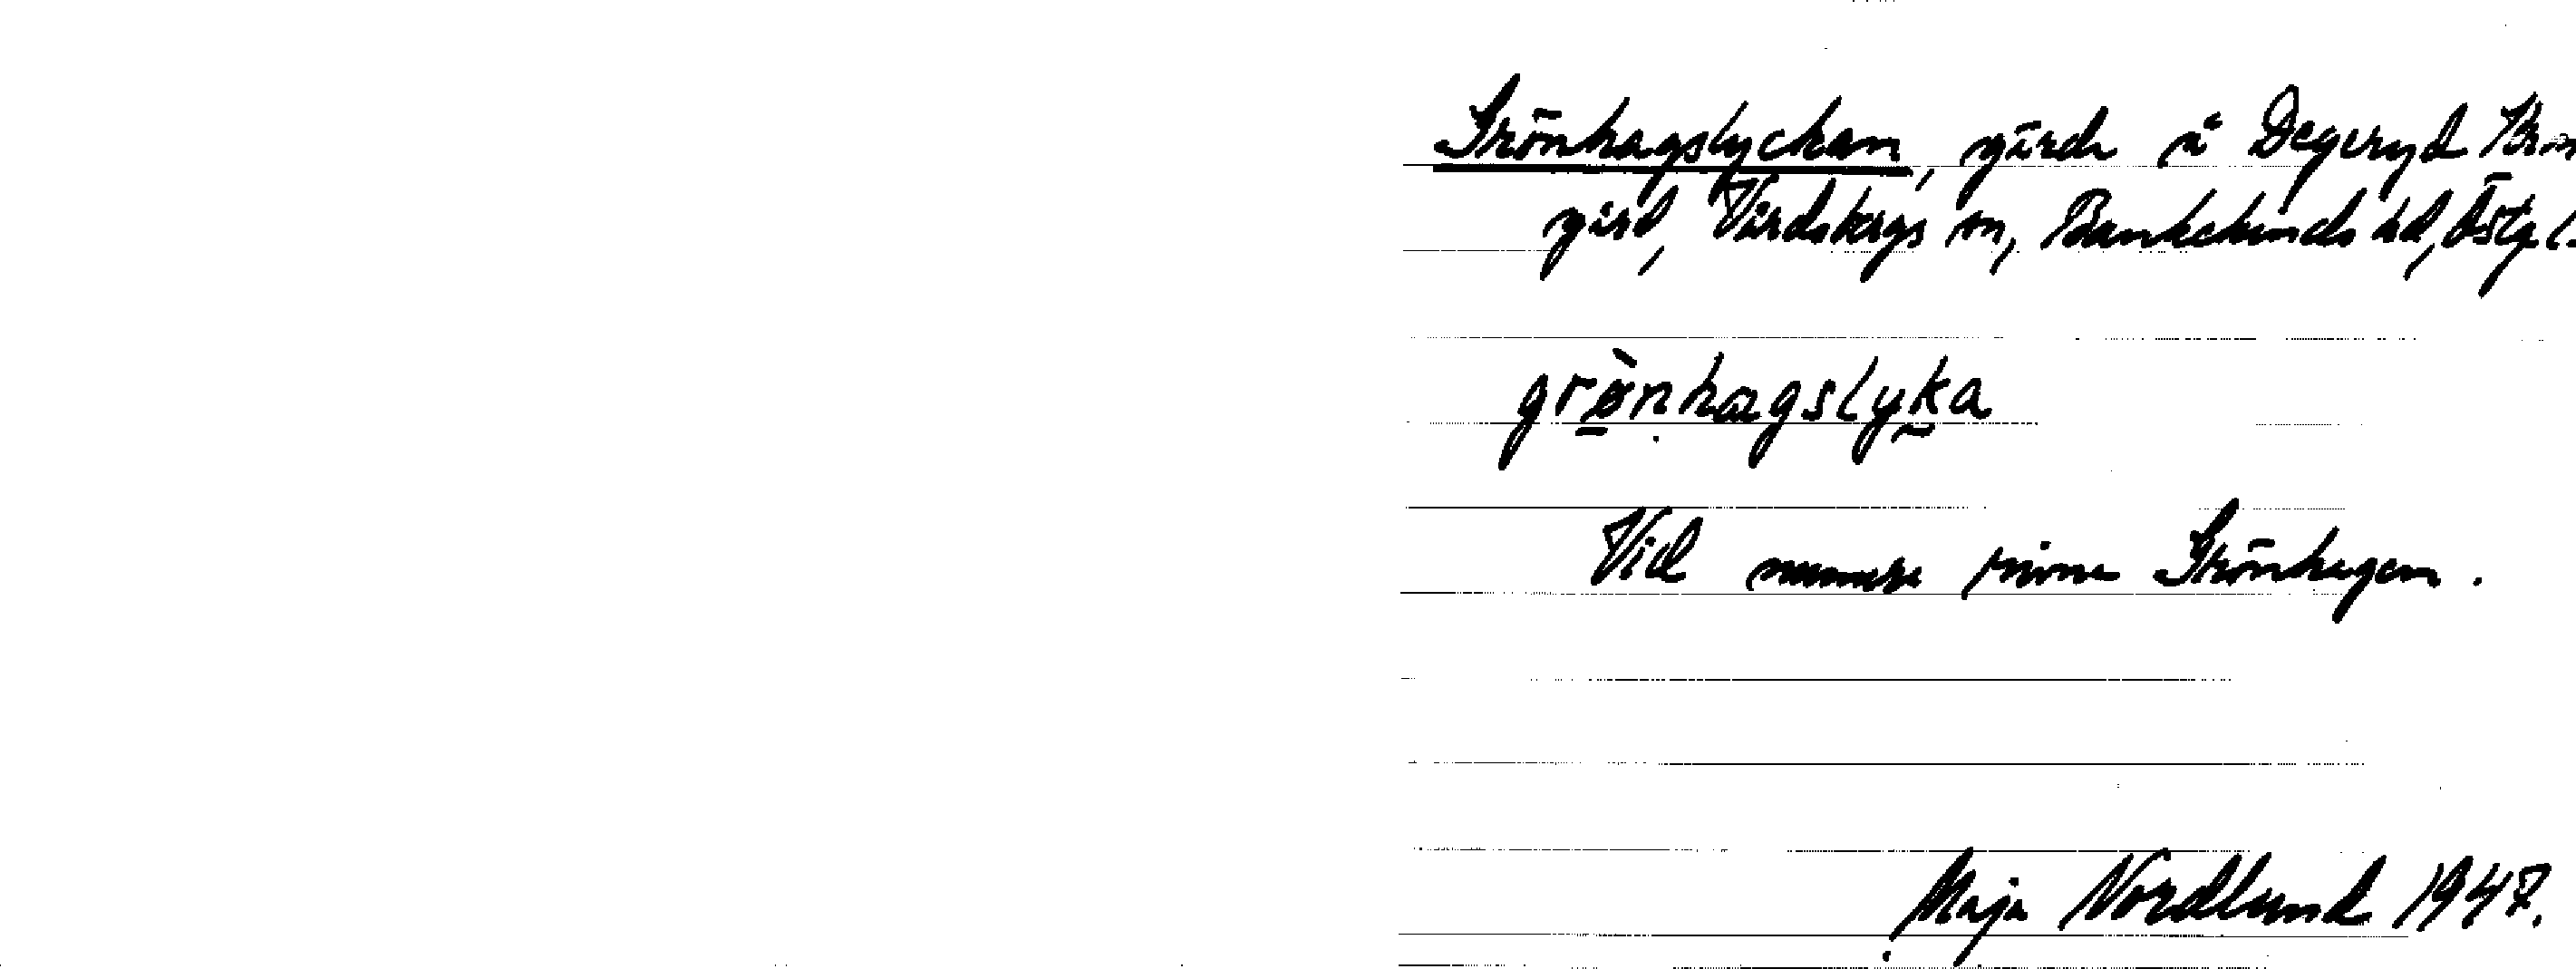 Grönhagslyckan, gärde å Degeryd Kron
gård, Vårdsbergs sn, Bankekinds hd, Östg l.
grönhagslyka
Vid numera rivna Grönhagen.
Maja Nordlund 1947.